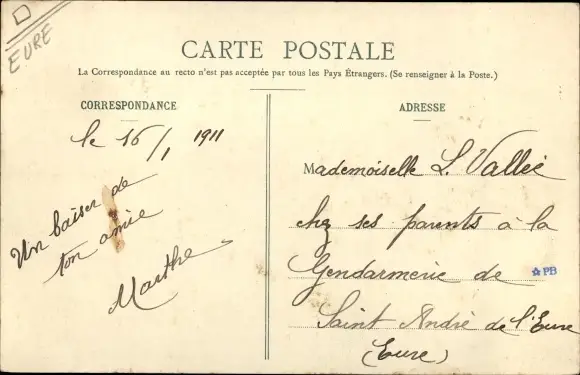 EURE
CARTE POSTALE
La Correspondance au recto n'est pas acceptée par tous les Pays Étrangers. (Se renseigner à la Poste.)
CORRESPONDANCE
le 16/1 1911
Un baiser de
ton amie
Marthe
ADRESSE
Mademoiselle L. Vallée
chez ses parents à la
Gendarmerie de
PB
Saint André de l'Eure
(Eure)